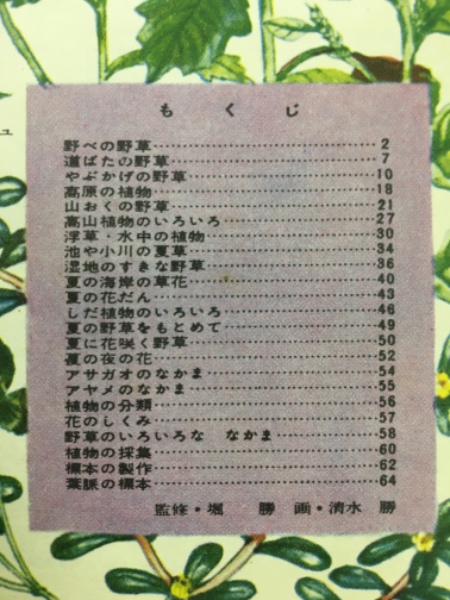 もくじ
野べの野草 2
道ばたの野草 7
やぶかげの野草 10
高原の植物 18
山おくの野草 21
高山植物のいろいろ 27
浮草・水中の植物 30
池や小川の夏草 34
湿地のすきな野草 36
夏の海岸の草花 40
夏の花だん 43
しだ植物のいろいろ 46
夏の野草をもとめて 49
夏に花咲く野草 50
夏の夜の花 52
アサガオのなかま 54
アヤメのなかま 55
植物の分類 56
花のしくみ 57
野草のいろいろな なかま 58
植物の採集 60
標本の製作 62
葉脈の標本 64
監修・堀 勝 画・清水 勝
ュ